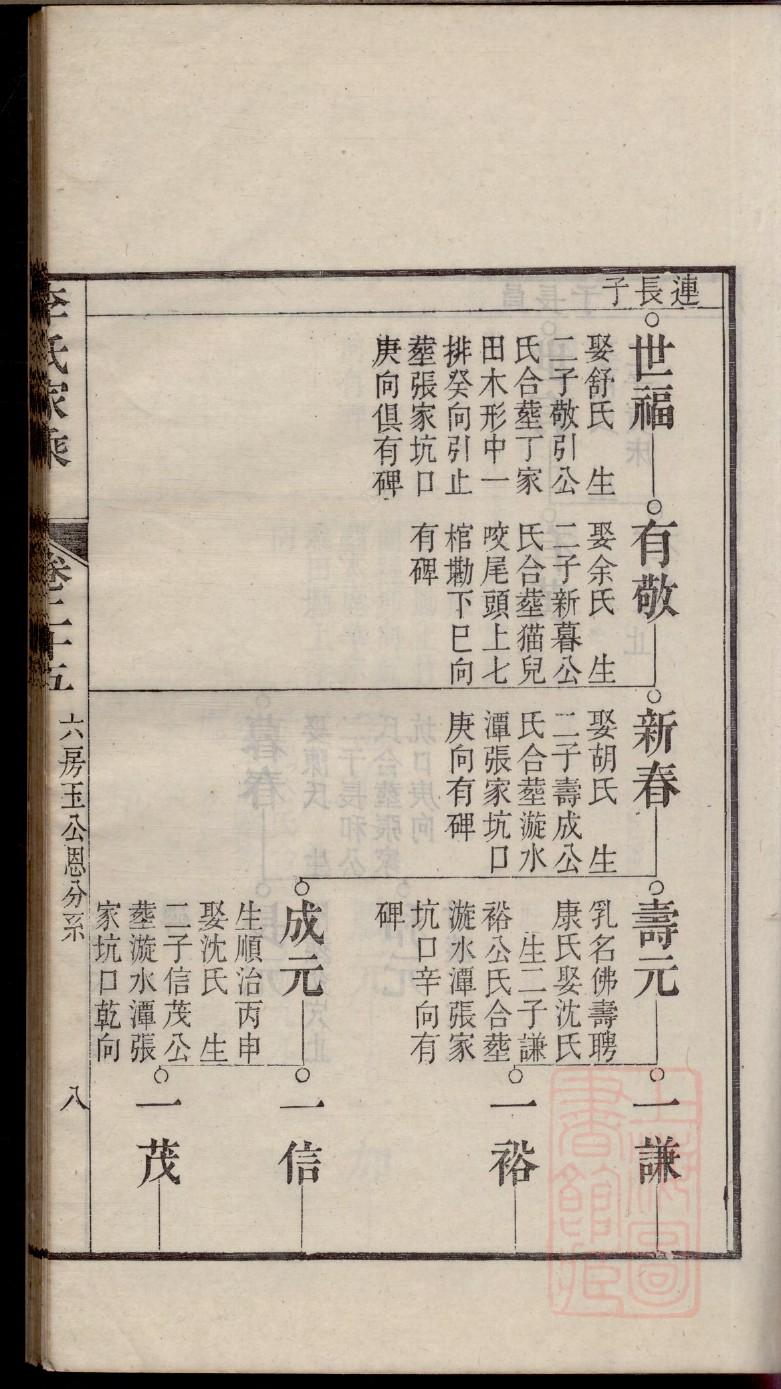 連長子
世福
娶舒氏　生
二子敬引公
氏合塟丁家
田木形中一
排癸向引止
塟張家坑口
庚向俱有碑
有敬
娶余氏　生
二子新暮公
氏合塟猫兒
咬尾頭上七
棺塝下巳向
有碑
新春
娶胡氏　生
二子壽成公
氏合塟漩水
潭張家坑口
庚向有碑
壽元
乳名佛壽聘
康氏娶沈氏
生二子謙
裕公氏合塟
漩水潭張家
坑口辛向有
碑
成元
生順治丙申
娶沈氏　生
二子信茂公
塟漩水潭張
家坑口乾向
一謙
一裕
一信
一茂
李氏家乘
卷二十五
六房玉公恩分系
八